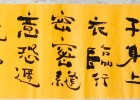 子身上
衣臨行
密密縫
意恐遲